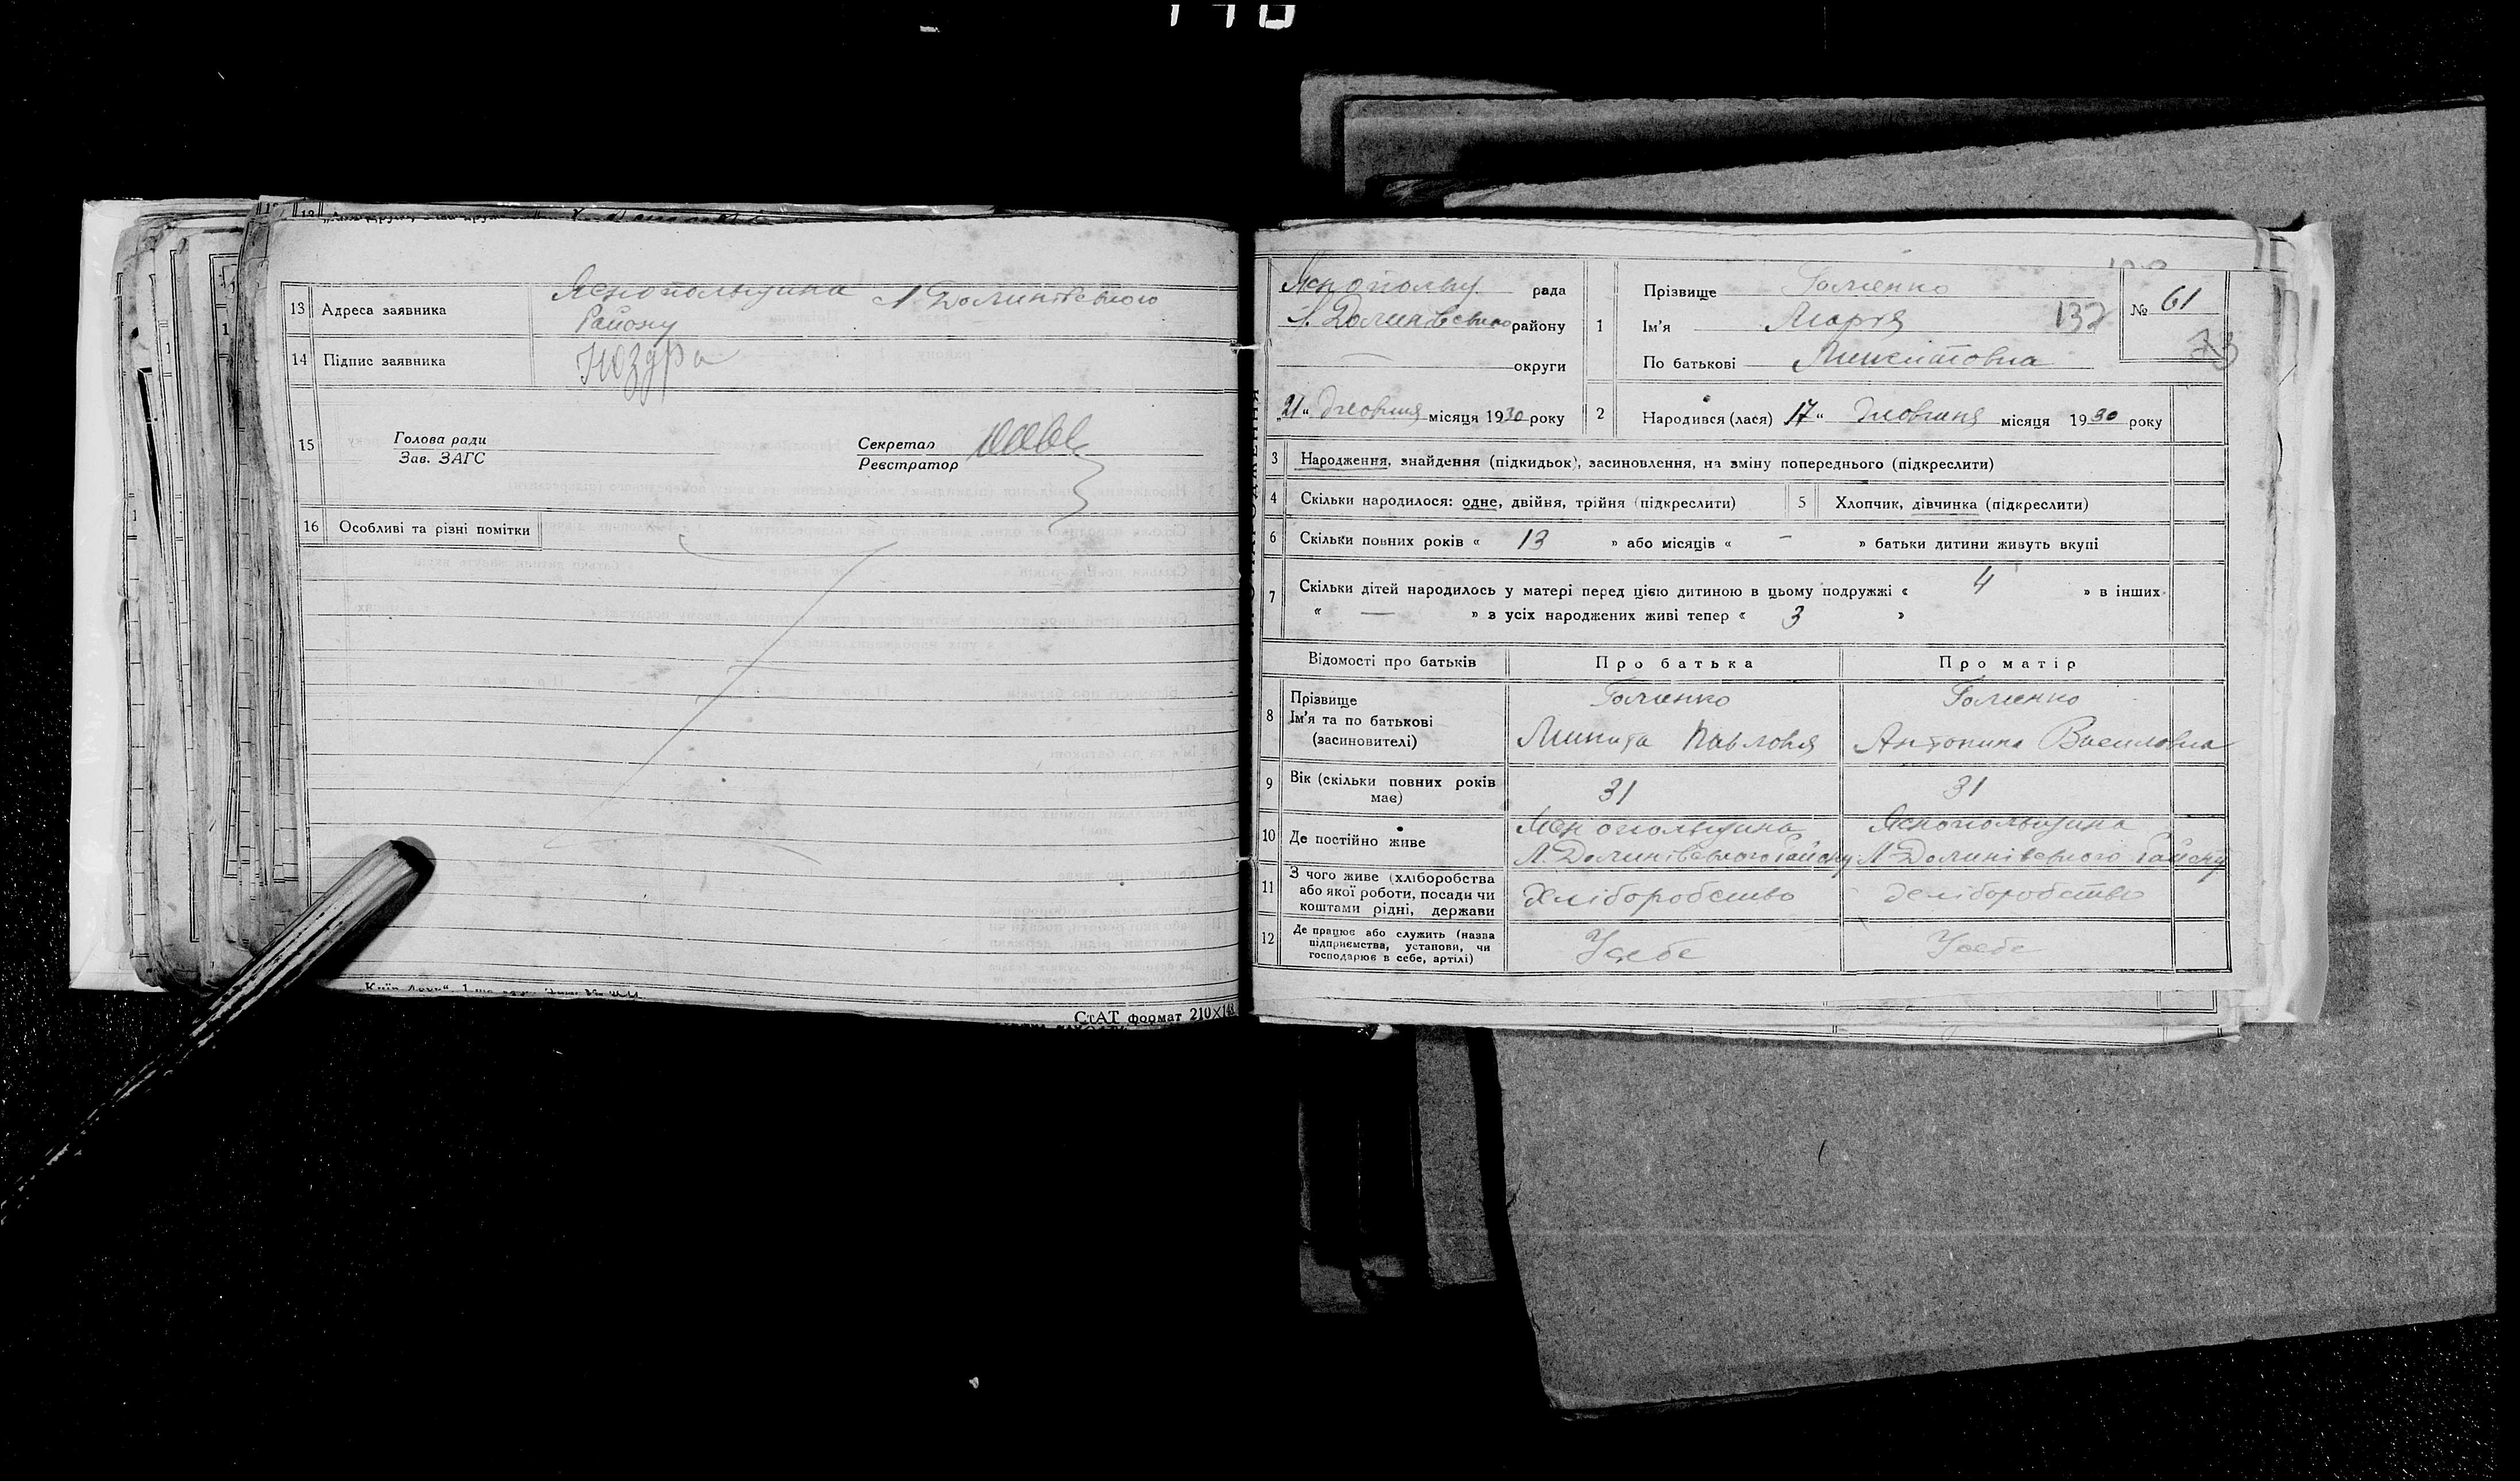 13 Адреса заявника Яснопольщина Л. Долинівського
Району
14 Підпис заявника
15 Голова ради
Зав. ЗАГС
Секретар
Реєстратор
16 Особливі та різні помітки
СтАТ формат 210×148
Яснопольщ. рада
Л. Долинівського району
— округи
„21“ Жовтня місяця 1930 року
1 Прізвище
Ім'я Марія 137
По батькові Микитовна
№ 61
73
2 Народився (лася) 17“ Жовтня місяця 1930 року
3 Народження, знайдення (підкидьок), засиновлення, на зміну попереднього (підкреслити)
4 Скільки народилося: одне, двійня, трійня (підкреслити) 5 Хлопчик, дівчинка (підкреслити)
6 Скільки повних років « 13 » або місяців « – » батьки дитини живуть вкупі
7 Скільки дітей народилось у матері перед цією дитиною в цьому подружжі « 4 » в інших
« — » з усіх народжених живі тепер « 3 »
Відомості про батьків Про батька Про матір
8 Прізвище
Ім'я та по батькові Микита Павловя Антонина Василовна
(засиновителі)
9 Вік (скільки повних років має) 31 31
10 Де постійно живе Яснопольщина Л. Долинівського Району Яснопольщина Л. Долинівського Району
11 З чого живе (хліборобства
або якої роботи, посади чи
коштами рідні, держави Хліборобство Хліборобство
12 Де працює або служить (назва
підприємства, установи, чи
господарює в себе, артілі) Усебе Усебе